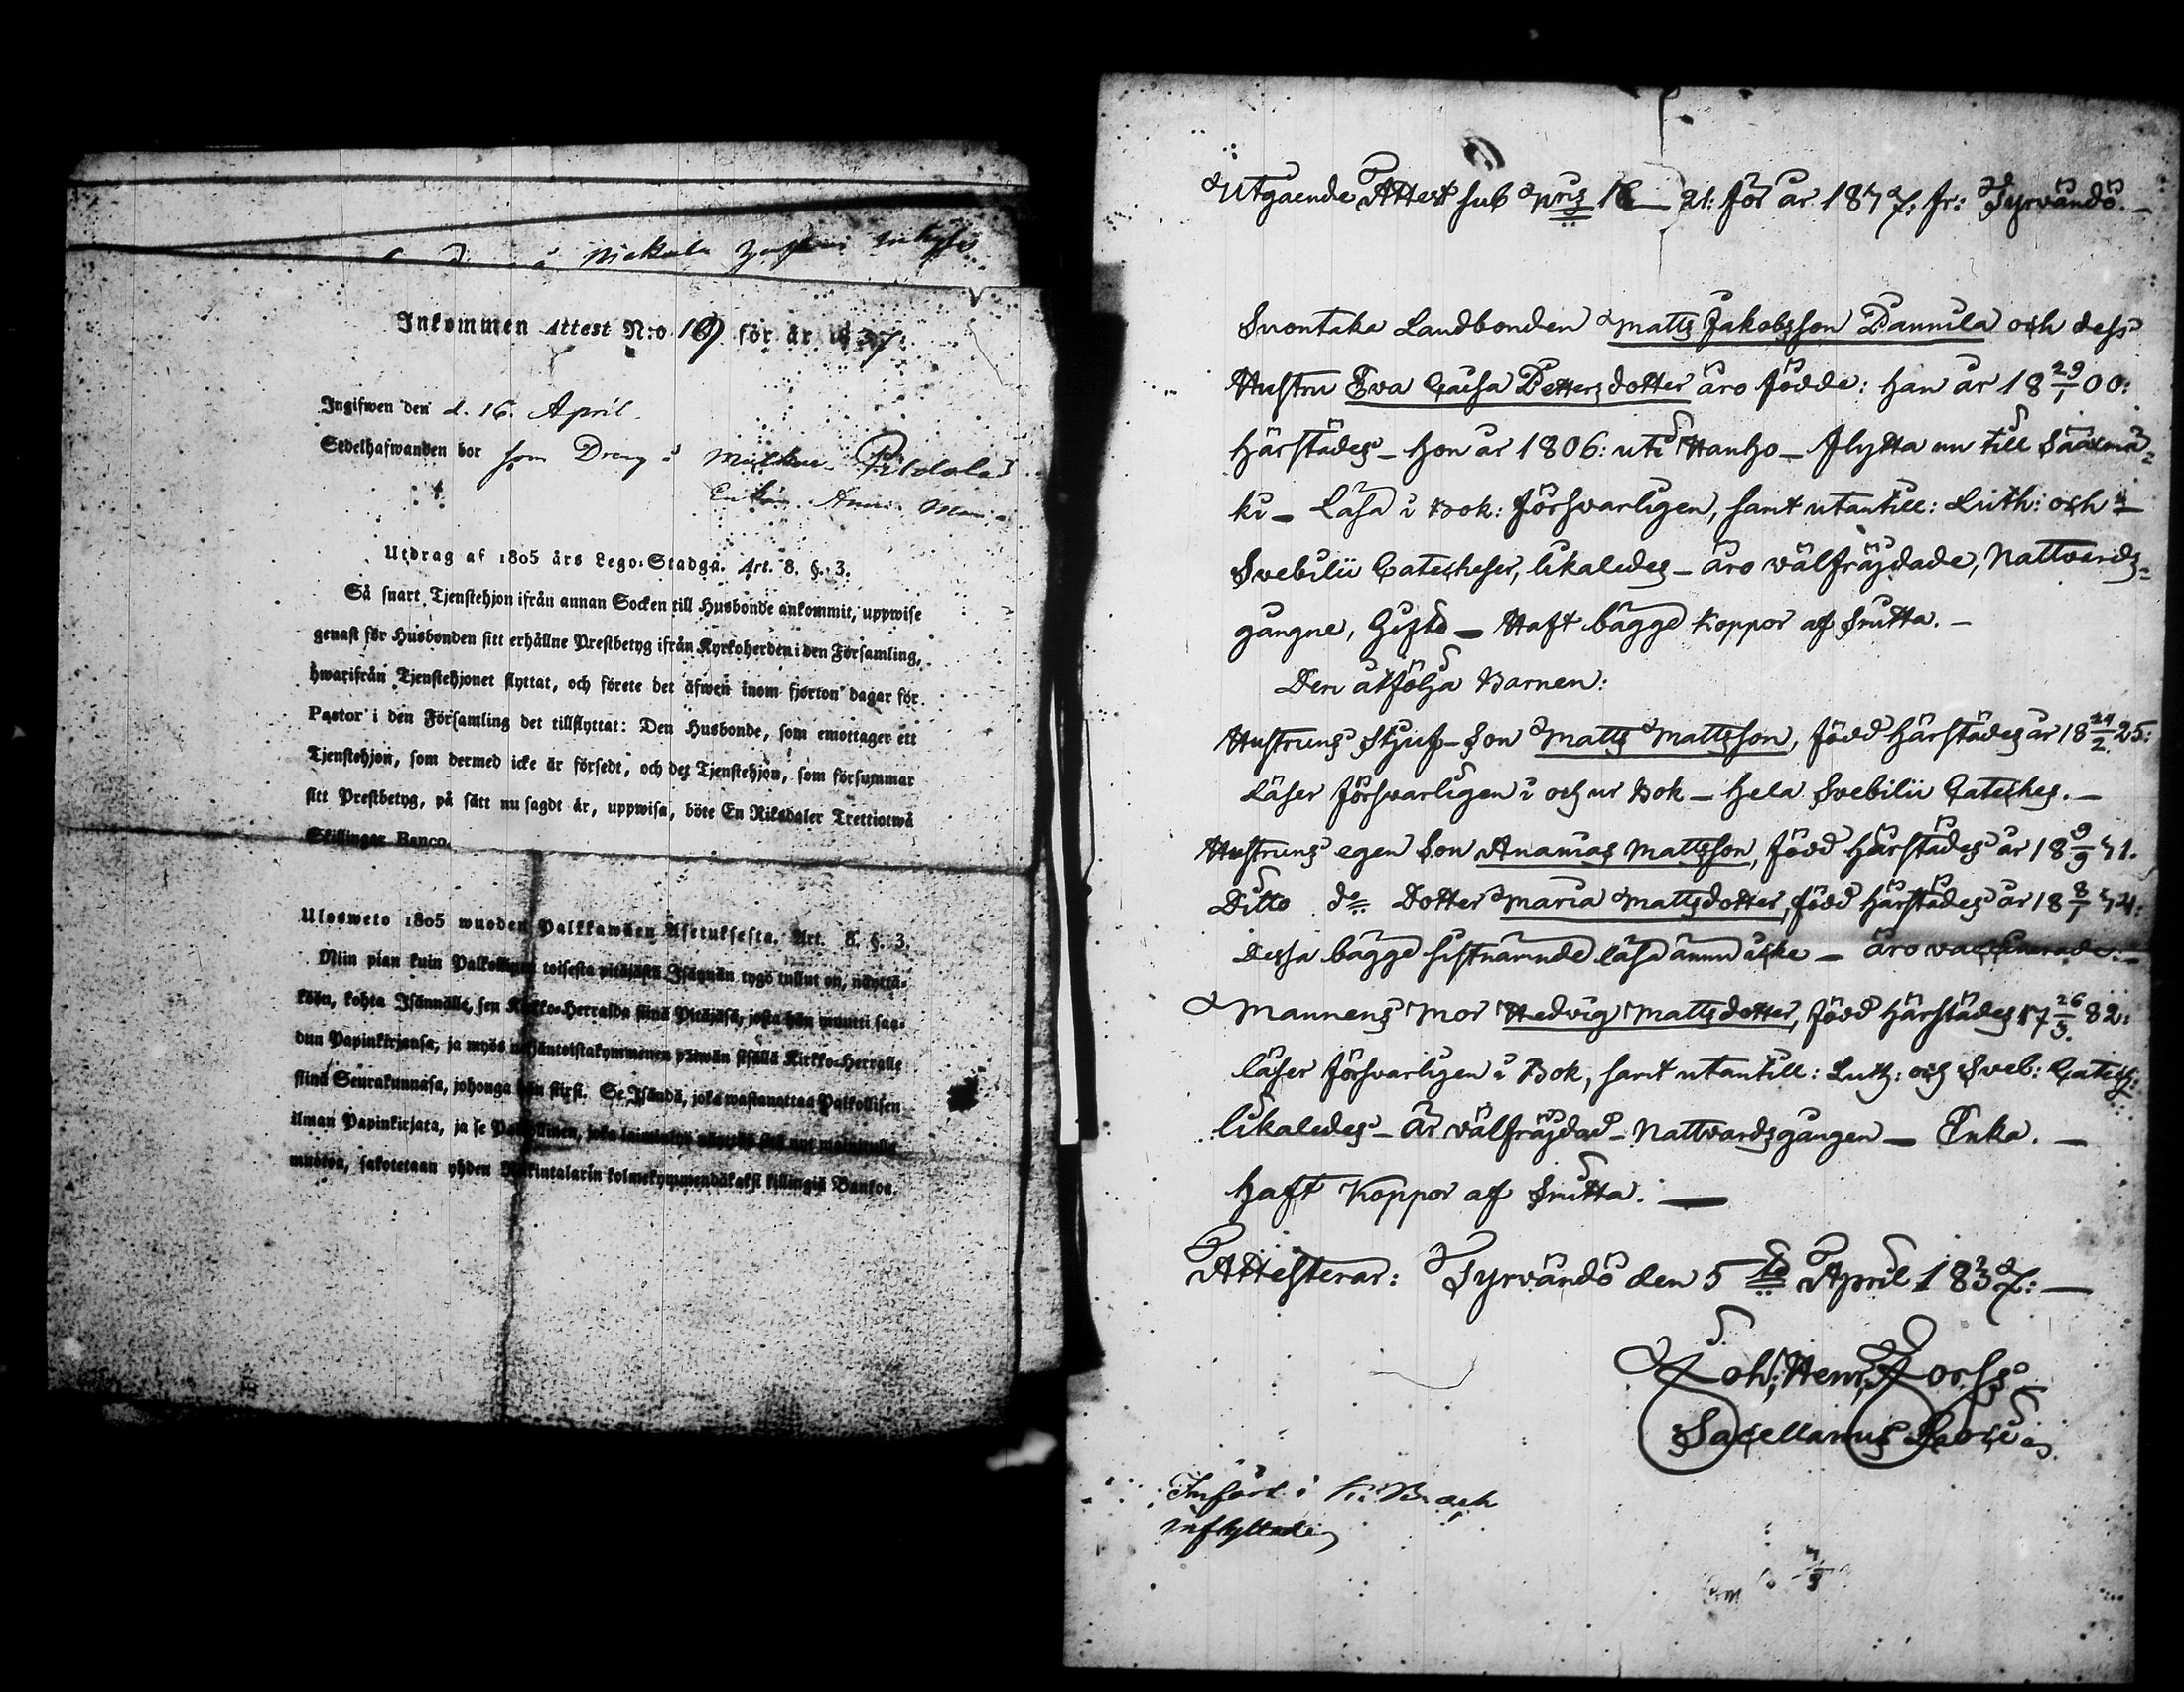 å Nickula
Inkommen Attest N:o 169 för år 1837.
Ingifwen den d. 16. April.
Sedelhafwanden bor som Dreng å
Enkan Anna
Utdrag af 1805 års Lego-Stadga. Art. 8. §. 3.
Så snart Tjenstehjon ifrån annan Socken till Husbonde ankommit, uppwise
genast för Husbonden sitt erhållne Prestbetyg ifrån Kyrkoherden i den Församling,
hwarifrån Tjenstehjonet flyttat, och förete det äfwen inom fjorton dagar för
Pastor i den Församling det tillflyttat: Den Husbonde, som emottager ett
Tjenstehjon, som dermed icke är försedt, och det Tjenstehjon, som försummar
sitt Prestbetyg, på sätt nu sagdt är, uppwisa, böte En Riksdaler Trettiotwå
Skillingar Banco.
Ulosweto 1805 wuoden Palkkawäen Asetuksesta. Art. 8. §. 3.
Niin pian kuin Palkollinen toisesta pitäjästä Isännän tygö tullut on, näyttä-
köön, kohta Isännälle, sen Kirkko-Herralda siinä Pitäjäsä, josta hän muutti saa-
dun Papinkirjansa, ja myös neljäntoistakymmenen päiwän sisällä Kirkko-Herralle
siinä Seurakunnasa, johonga hän siirsi. Se Isändä, joka wastanottaa Palkollisen
ilman Papinkirjata, ja se Palkollinen, joka laiminlyö näyttää sitä nyt mainitulla
muotoa, sakotetaan yhden Riikintalarin kolmekymmendäkaksi killingiä Bankoa.
Utgaende Attest sub 21: för år 1837: fr: Tyrvändö.
Suontaka Landbonden Matts Jakobsson Pannila och dess
Hustru Eva Cajsa Pettersdotter äro födde: han år 18 29/1 00:
härstädes – hon år 1806: uti Hauho – flytta nu till Sääxmä-
ki – Läsa i Bok: försvarligen, samt utantill: Luth: och
Svebilii Catecheser, likaledes – äro välfräjdade, Nattvards-
gangne, Gifta – Haft bägge Koppor af Smitta. –
Dem åtfölja Barnen:
Hustruns Stjuf-Son Matts Mattsson, född härstädes år 18 24/2 25:
Läser försvarligen i och ur Bok – hela SvebiliiAteches. –
Hustruns egen Son Ananias Mattsson, född härstädes år 18 9/9 31.
Ditto do Dotter Maria Mattsdotter, född härstädes år 18 8/1 34:
dessa bägge sistnämnde läsa ännu icke – äro vaccinerade. –
Mannens Mor Hedvig Mattsdotter, född härstädes 17 26/3 82:
läser försvarligen i Bok, samt utantill: Luth: och Sveb: Catech:
likaledes – är välfräjdad – Nattvardsgången – Enka. –
haft Koppor af Smitta. –
Attesterar: Tyrvändö den 5te April 1837: –
Joh: Henr. Forss
Sacellanus Loci
Införd i
inflyttade